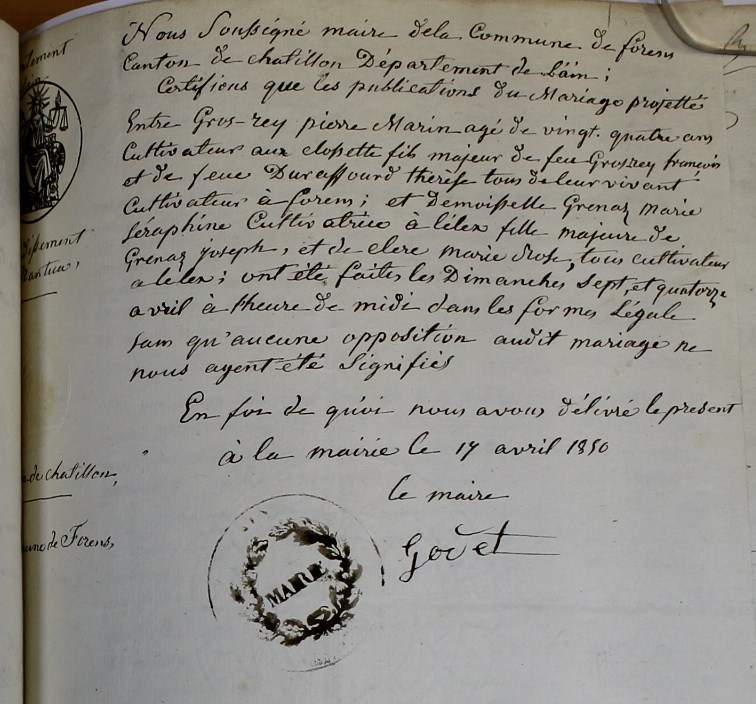 Nous Soussigné maire dela Commune de forens
Canton de chatillon Département de L'ain ;
Certifions que les publications du Mariage projetté
Entre Gros-rey pierre Marin agé de vingt-quatre ans
Cultivateur aux closette fils majeur de feu Grosrey françois
et de feue Duraffourd thérèse tous de leur vivant
Cultivateur à forens ; et demoisselle Grenaz Marie
Séraphine Cultivatrice à lélex fille majeure de
Grenaz joseph, et de clere marie Rose, tous cultivateur
a lelex ; ont été faites les Dimanches Sept, et quatorze
avril à l'heure de midi dans les formes Légale
sans qu'aucune opposition audit mariage ne
nous ayent été Signifiés
En foi de quoi nous avons délivré le present
à la mairie le 17 avril 1850
le maire
Govet
MAIRE
de chatillon,
de Forens,